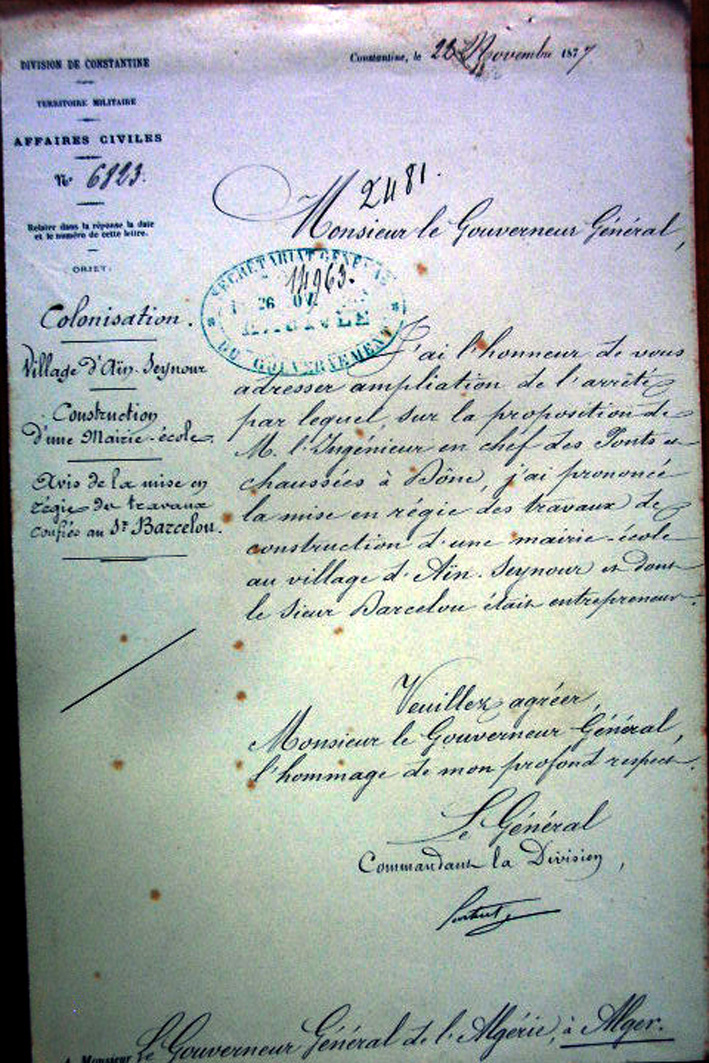 DIVISION DE CONSTANTINE
TERRITOIRE MILITAIRE
AFFAIRES CIVILES
No 6823.
Relater dans la réponse la date
et le numéro de cette lettre.
OBJET:
Colonisation.
Village d'Aïn-Seynour
Construction
d'une Mairie-école.
Avis de la mise en
régie des travaux
confiés au Sr Barcelou.
Constantine, le Novembre 1877
2481.
Monsieur le Gouverneur Général,
SECRÉTARIAT GÉNÉRAL
14963.
26
DU GOUVERNEMENT
J'ai l'honneur de vous
adresser ampliation de l'arrêté
par lequel, sur la proposition de
M. l'Ingénieur en chef des Ponts et
chaussées à Bône, j'ai prononcé
la mise en régie des travaux de
construction d'une mairie-école
au village d'Aïn-Seynour et dont
le sieur Barcelou était entrepreneur.
Veuillez agréer,
Monsieur le Gouverneur Général,
l'hommage de mon profond respect.
Le Général
Commandant la Division,
A Monsieur Le Gouverneur Général de l'Algérie, à Alger.